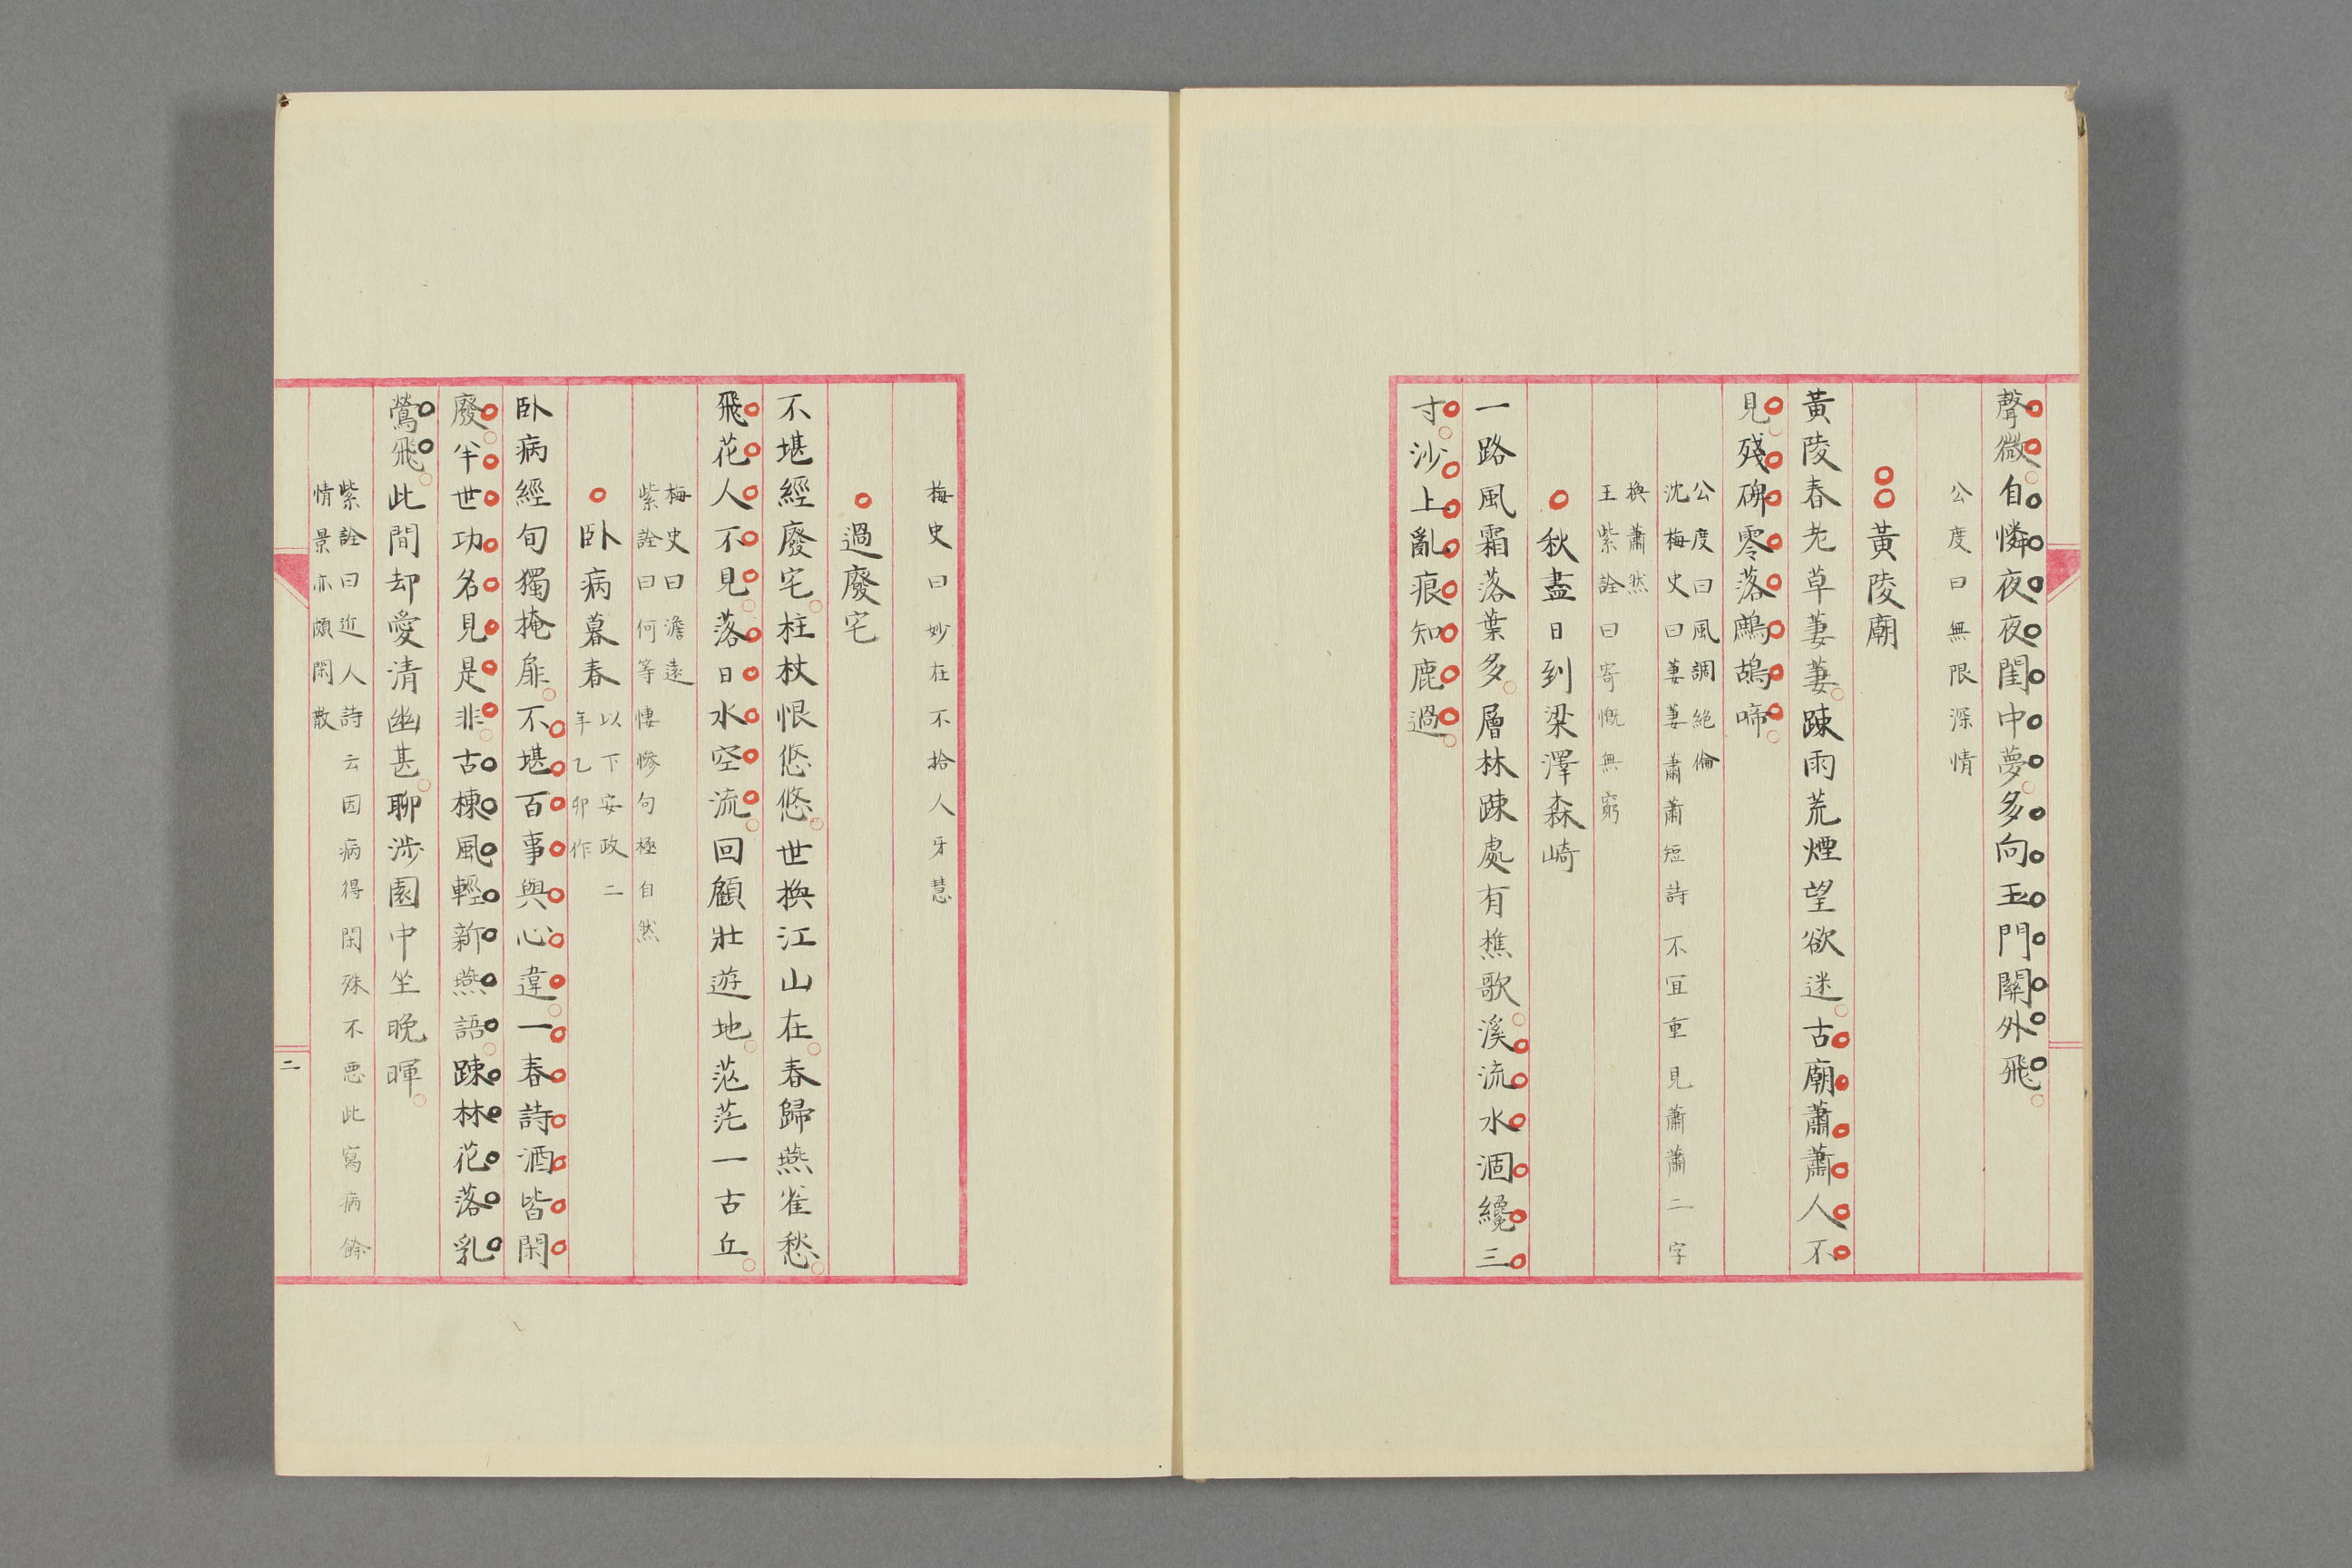 聲微自憐夜夜閨中夢多向玉門關外飛
公度曰無限深情
黃陵廟
黃陵春老草萋萋踈雨荒煙望欲迷古廟蕭蕭人不
見殘碑零落鷓鴣啼
公度曰風調絕倫
沈梅史曰萋萋蕭蕭短詩不宜重見蕭蕭二字
換蕭然
王紫詮曰寄慨無窮
秋盡日到梁澤森崎
一路風霜落葉多層林踈處有樵歌溪流水涸纔三
寸沙上亂痕知鹿過
梅史曰妙在不拾人牙慧
過廢宅
不堪經廢宅柱杖恨悠悠世換江山在春歸燕雀愁
飛花人不見落日水空流回顧壯遊地茫茫一古丘
梅史曰澹遠
紫詮曰何等悽慘句極自然
臥病暮春 以下安政二
年乙卯作
臥病經旬獨掩扉不堪百事與心違一春詩酒皆閑
廢半世功名見是非古棟風輕新燕語踈林花落乳
鶯飛此間却愛清幽甚聊涉園中坐晚暉
紫詮曰近人詩云因病得閑殊不惡此寫病餘
情景亦頗閑散
二